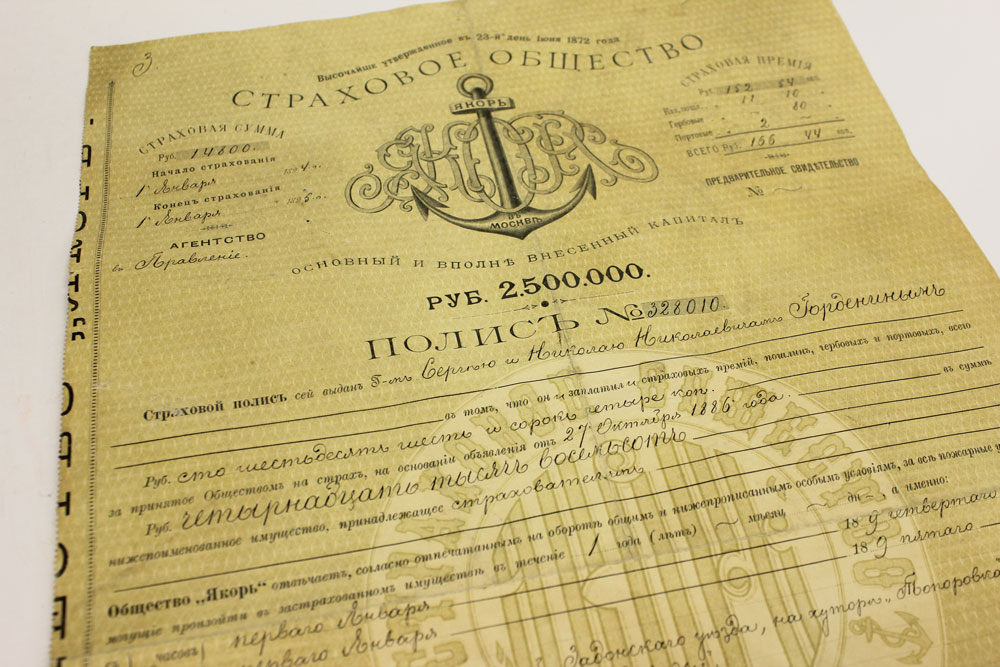 3
Высочайше утвержденное въ 23-й день Іюня 1872 года
СТРАХОВОЕ ОБЩЕСТВО
ЯКОРЬ
ЯКОРЬ
ВЪ МОСКВѢ
СТРАХОВАЯ СУММА
Руб. 14800.
Начало страхованія
1 Января 1894 г.
Конецъ страхованія
1 Января 1895 г.
АГЕНТСТВО
въ Правленіе.
СТРАХОВАЯ ПРЕМІЯ
Руб. 152 54 коп.
11 10
Гербовые 80
Портовые 2
ВСЕГО Руб. 166 44 коп.
ПРЕДВАРИТЕЛЬНОЕ СВИДѢТЕЛЬСТВО
№
ОСНОВНЫЙ И ВПОЛНѢ ВНЕСЕННЫЙ КАПИТАЛЪ
РУБ. 2.500.000.
ПОЛИСЪ №328010
Страховой полисъ сей выданъ Г-мъ Сергѣю и Николаю Николаевичамъ Горденинымъ
въ томъ, что он и заплатил и страховыхъ премій, пошлин, гербовыхъ и портовыхъ, всего
Руб. сто шестьдесятъ шесть и сорокъ четыре коп.
за принятое Обществомъ на страхъ, на основаніи объявленія отъ 27 Октября 1886 года. въ суммѣ
Руб. четырнадцать тысячъ восемьсотъ
нижепоименованное имущество, принадлежащее страхователямъ
Общество „Якорь" отвѣчаетъ, согласно отпечатаннымъ на оборотѣ общимъ и нижепрописаннымъ особымъ условіямъ, за всѣ пожарные
могущіе произойти въ застрахованномъ имуществѣ въ теченіе 1 года (лѣтъ) мѣсяц дн а именно:
съ часовъ перваго Января 189 четвертаго
перваго Января 189 пятаго
Задонскаго уѣзда, на хуторѣ „Топоровка